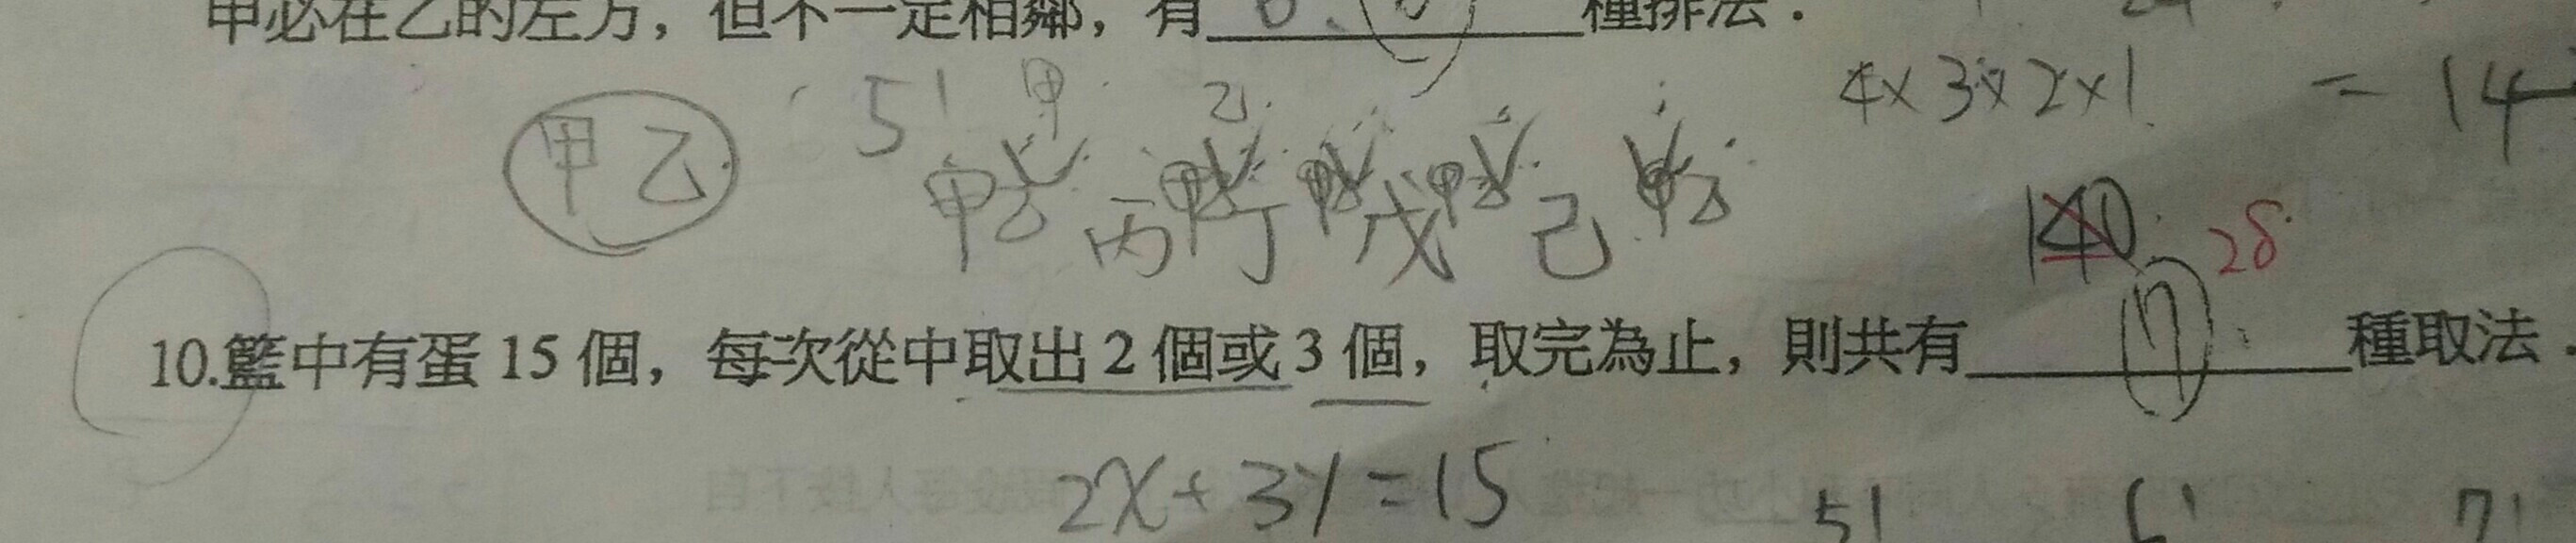 甲必在乙的左方，但不一定相鄰，有 種排法．
4×3×2×1 = 14
甲乙 5! 甲 乙
丙 丁 戊 己
140 28
10.籃中有蛋 15 個，每次從中取出 2 個或 3 個，取完為止，則共有 7 種取法．
2x+3y=15 5! 6! 7!